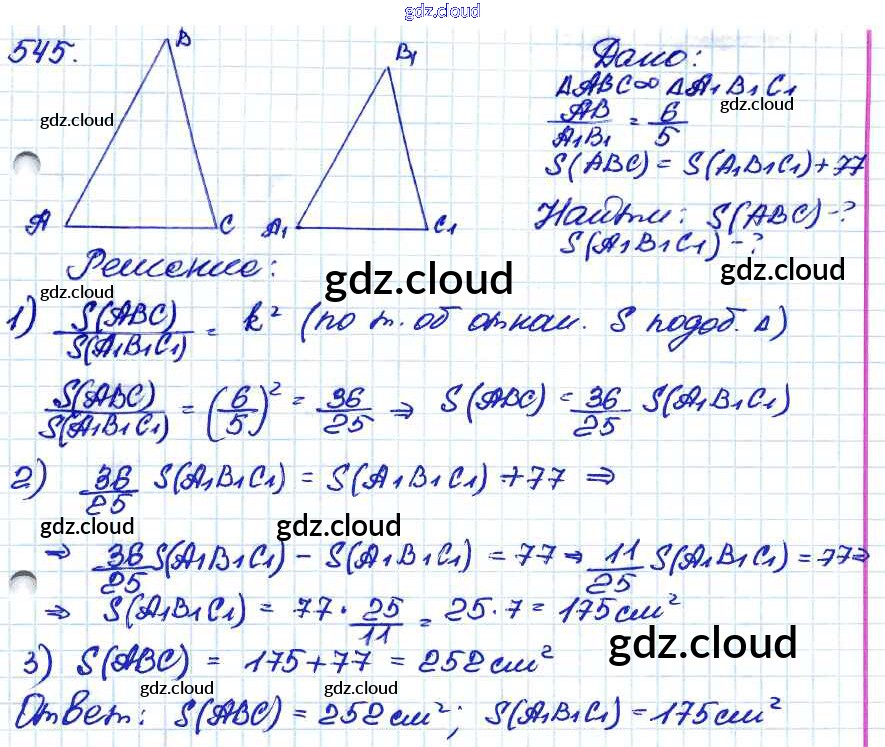 gdz.cloud
545.
B
B₁
A
C
A₁
C₁
gdz.cloud
Дано:
ΔABC∞ ΔA₁B₁C₁
gdz.cloud
AB/A₁B₁ = 6/5
S(ABC) = S(A₁B₁C₁)+77
Найти: S(ABC)-?
S(A₁B₁C₁)-?
gdz.cloud
Решение:
gdz.cloud
gdz.cloud
1) S(ABC)/S(A₁B₁C₁) = k² (по т. об отнош. S подоб. Δ)
S(ABC)/S(A₁B₁C₁) = (6/5)² = 36/25 ⇒ S(ABC) = 36/25 S(A₁B₁C₁)
2) 36/25 S(A₁B₁C₁) = S(A₁B₁C₁) + 77 ⇒
gdz.cloud gdz.cloud
⇒ 36/25 S(A₁B₁C₁) - S(A₁B₁C₁) = 77 ⇒ 11/25 S(A₁B₁C₁) = 77⇒
⇒ S(A₁B₁C₁) = 77 · 25/11 = 25·7 = 175см²
gdz.cloud
3) S(ABC) = 175+77 = 252см²
gdz.cloud gdz.cloud
Ответ: S(ABC) = 252см²; S(A₁B₁C₁) = 175см²